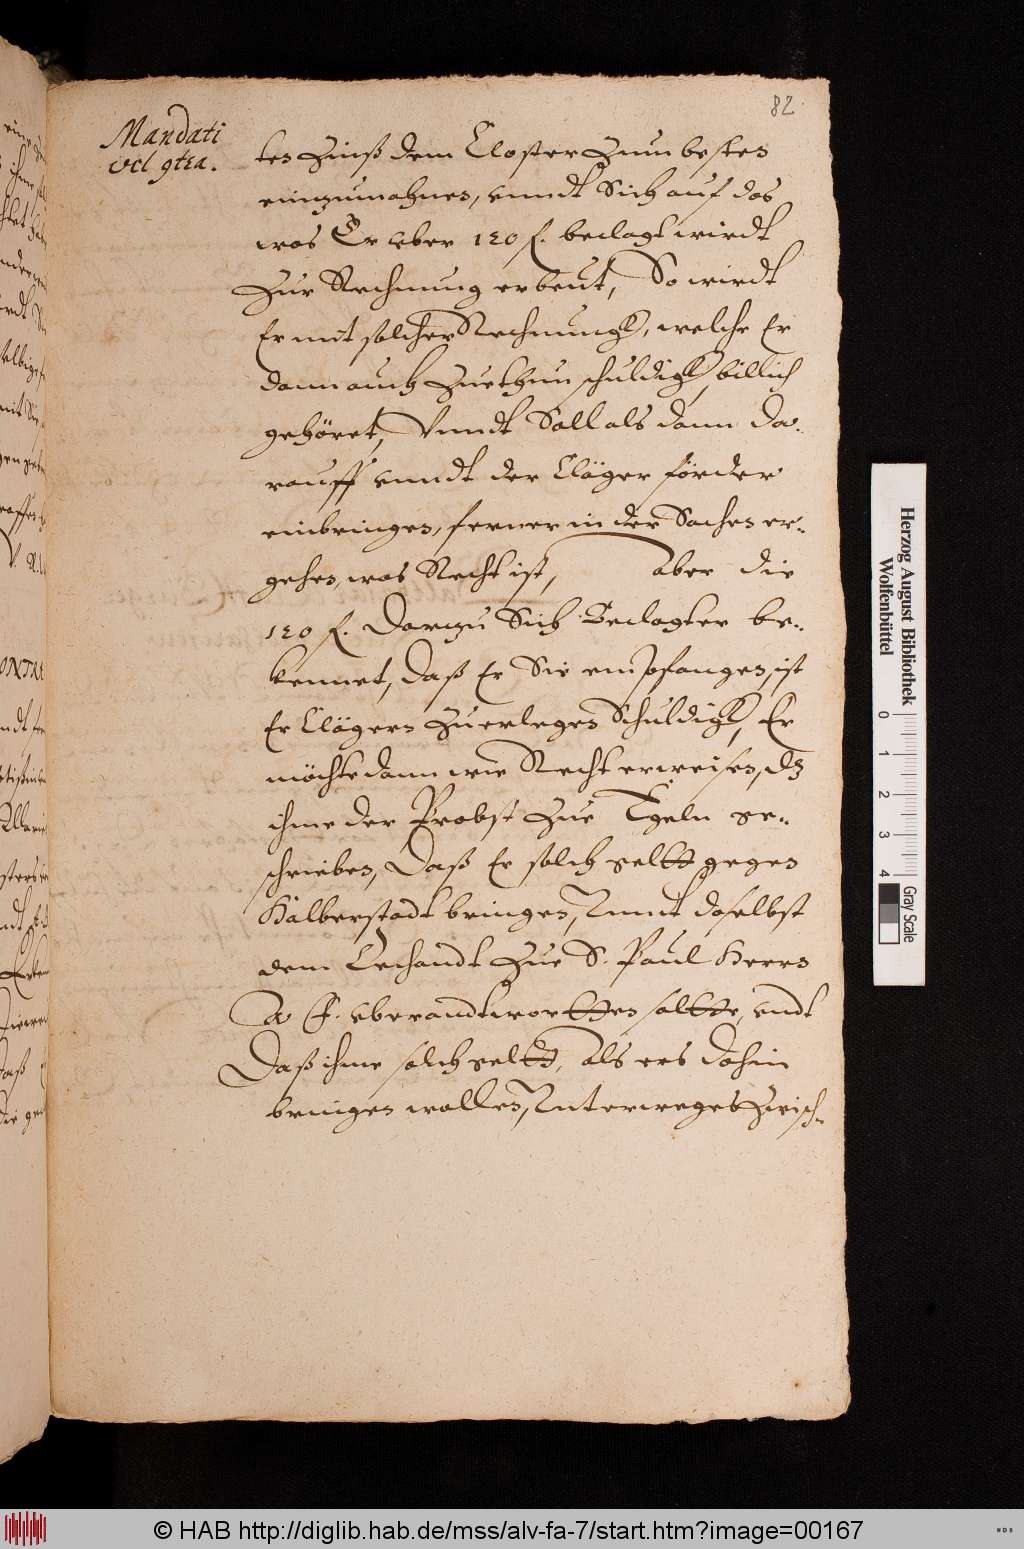 82
Mandati
vel gtra.
ten Zinß dem Closter Zum besten
einzumahnen, unndt Sich auf das
was Er uber 120 f. beclagt wirdt
Zur Rechnung erbeut, So wirdt
Er mit solcher Rechnungk, welche Er
dann auch Zuethun schuldigk, billich
gehöret, Unndt Soll als dann da-
rauff unndt der Cläger förder
einbringen, ferner in der Sachen er-
gehen, was Recht ist, aber die
120 f. Darzu Sich Beclagter be-
kennet, daß Er Sie empfangen, ist
Er Clägern Zuerlegen Schuldigk, Er
möchte dann wie Recht erweisen, dz
ihme der Probst Zue Egeln ge-
schrieben, Daß Er solch geltt gegen
Halberstadt bringen, Unnd daselbst
dem Techandt Zue S. Paul Herrn
uberandtwortten soltte, undt
Daß ihme solch geltt, als ers dahin
bringen wollen, Unterweges Zwisch-
Herzog August Bibliothek
Wolfenbüttel
0 1 2 3 4
Gray Scale
© HAB http://diglib.hab.de/mss/alv-fa-7/start.htm?image=00167